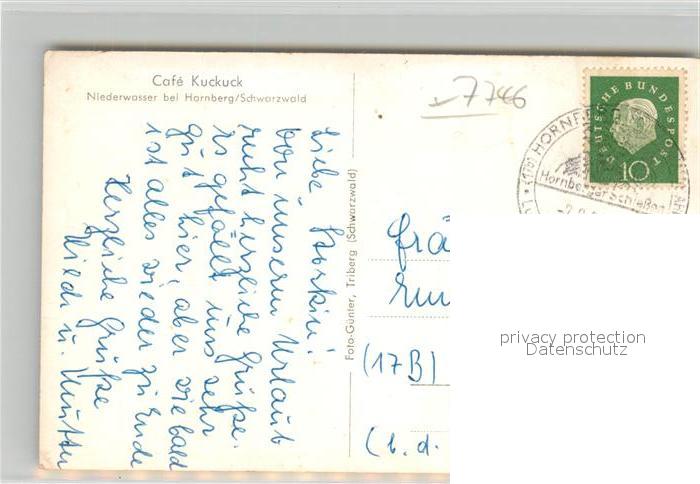 Café Kuckuck
Niederwasser bei Hornberg/Schwarzwald
7746
DEUTSCHE BUNDESPOST
10
HORNBERG
Hornberger Schießen
Liebe
von unserm Urlaub
recht herzliche Grüße.
Es gefällt uns sehr
gut hier, aber wie bald
ist alles wieder zu Ende
Herzliche Grüße
u. Mutter
Foto-Günter, Triberg (Schwarzwald)
(17B)
(b.d.
privacy protection
Datenschutz